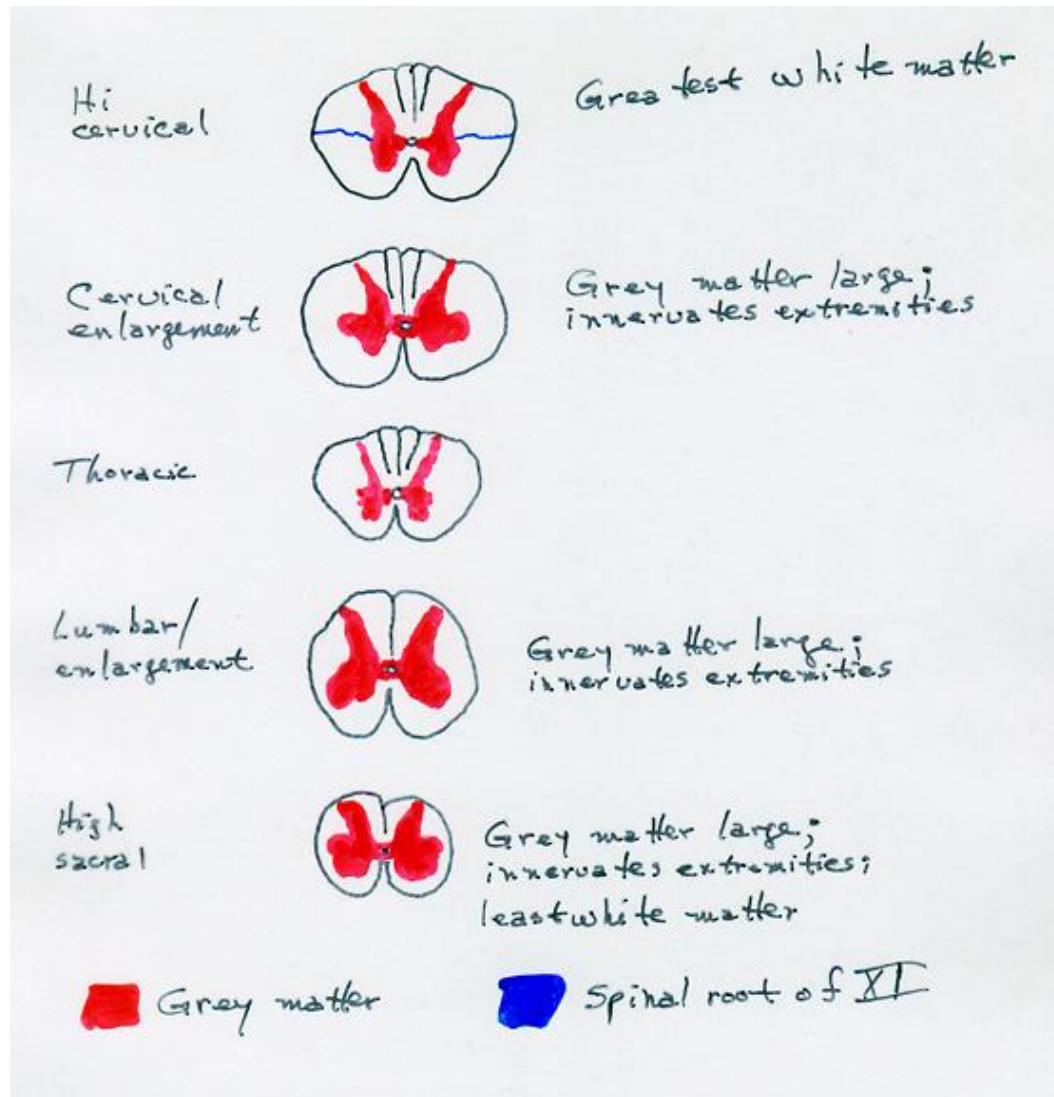 Hi
cervical
Greatest white matter
Cervical
enlargement
Grey matter large;
innervates extremities
Thoracic
Lumbar/
enlargement
Grey matter large;
innervates extremities
High
sacral
Grey matter large;
innervates extremities;
least white matter
Grey matter
Spinal root of XI